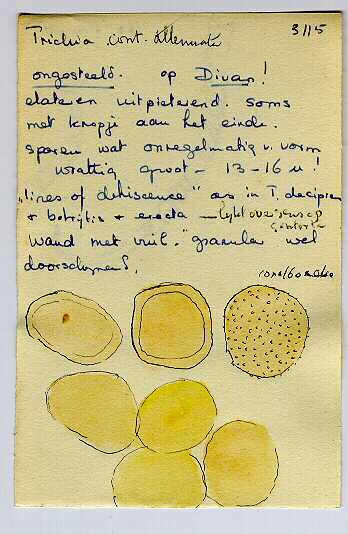 3115
Trichia cont. Attenuata
ongesteeld. op Divan!
elateren uitpieterend. soms
met knopje aan het einde.
sporen wat onregelmatig v. vorm
wrattig groot - 13-16 u!
"lines of dehiscence" as in T. decipien
+ botrytis + erecta - lijkt over
Wand met vuil. "granular wel
doorschijnend.